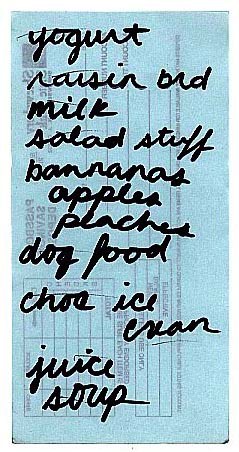 yogurt
raisin brd
milk
salad stuff
bannanas
apples
peaches
dog food
choc ice
cream
juice
soup